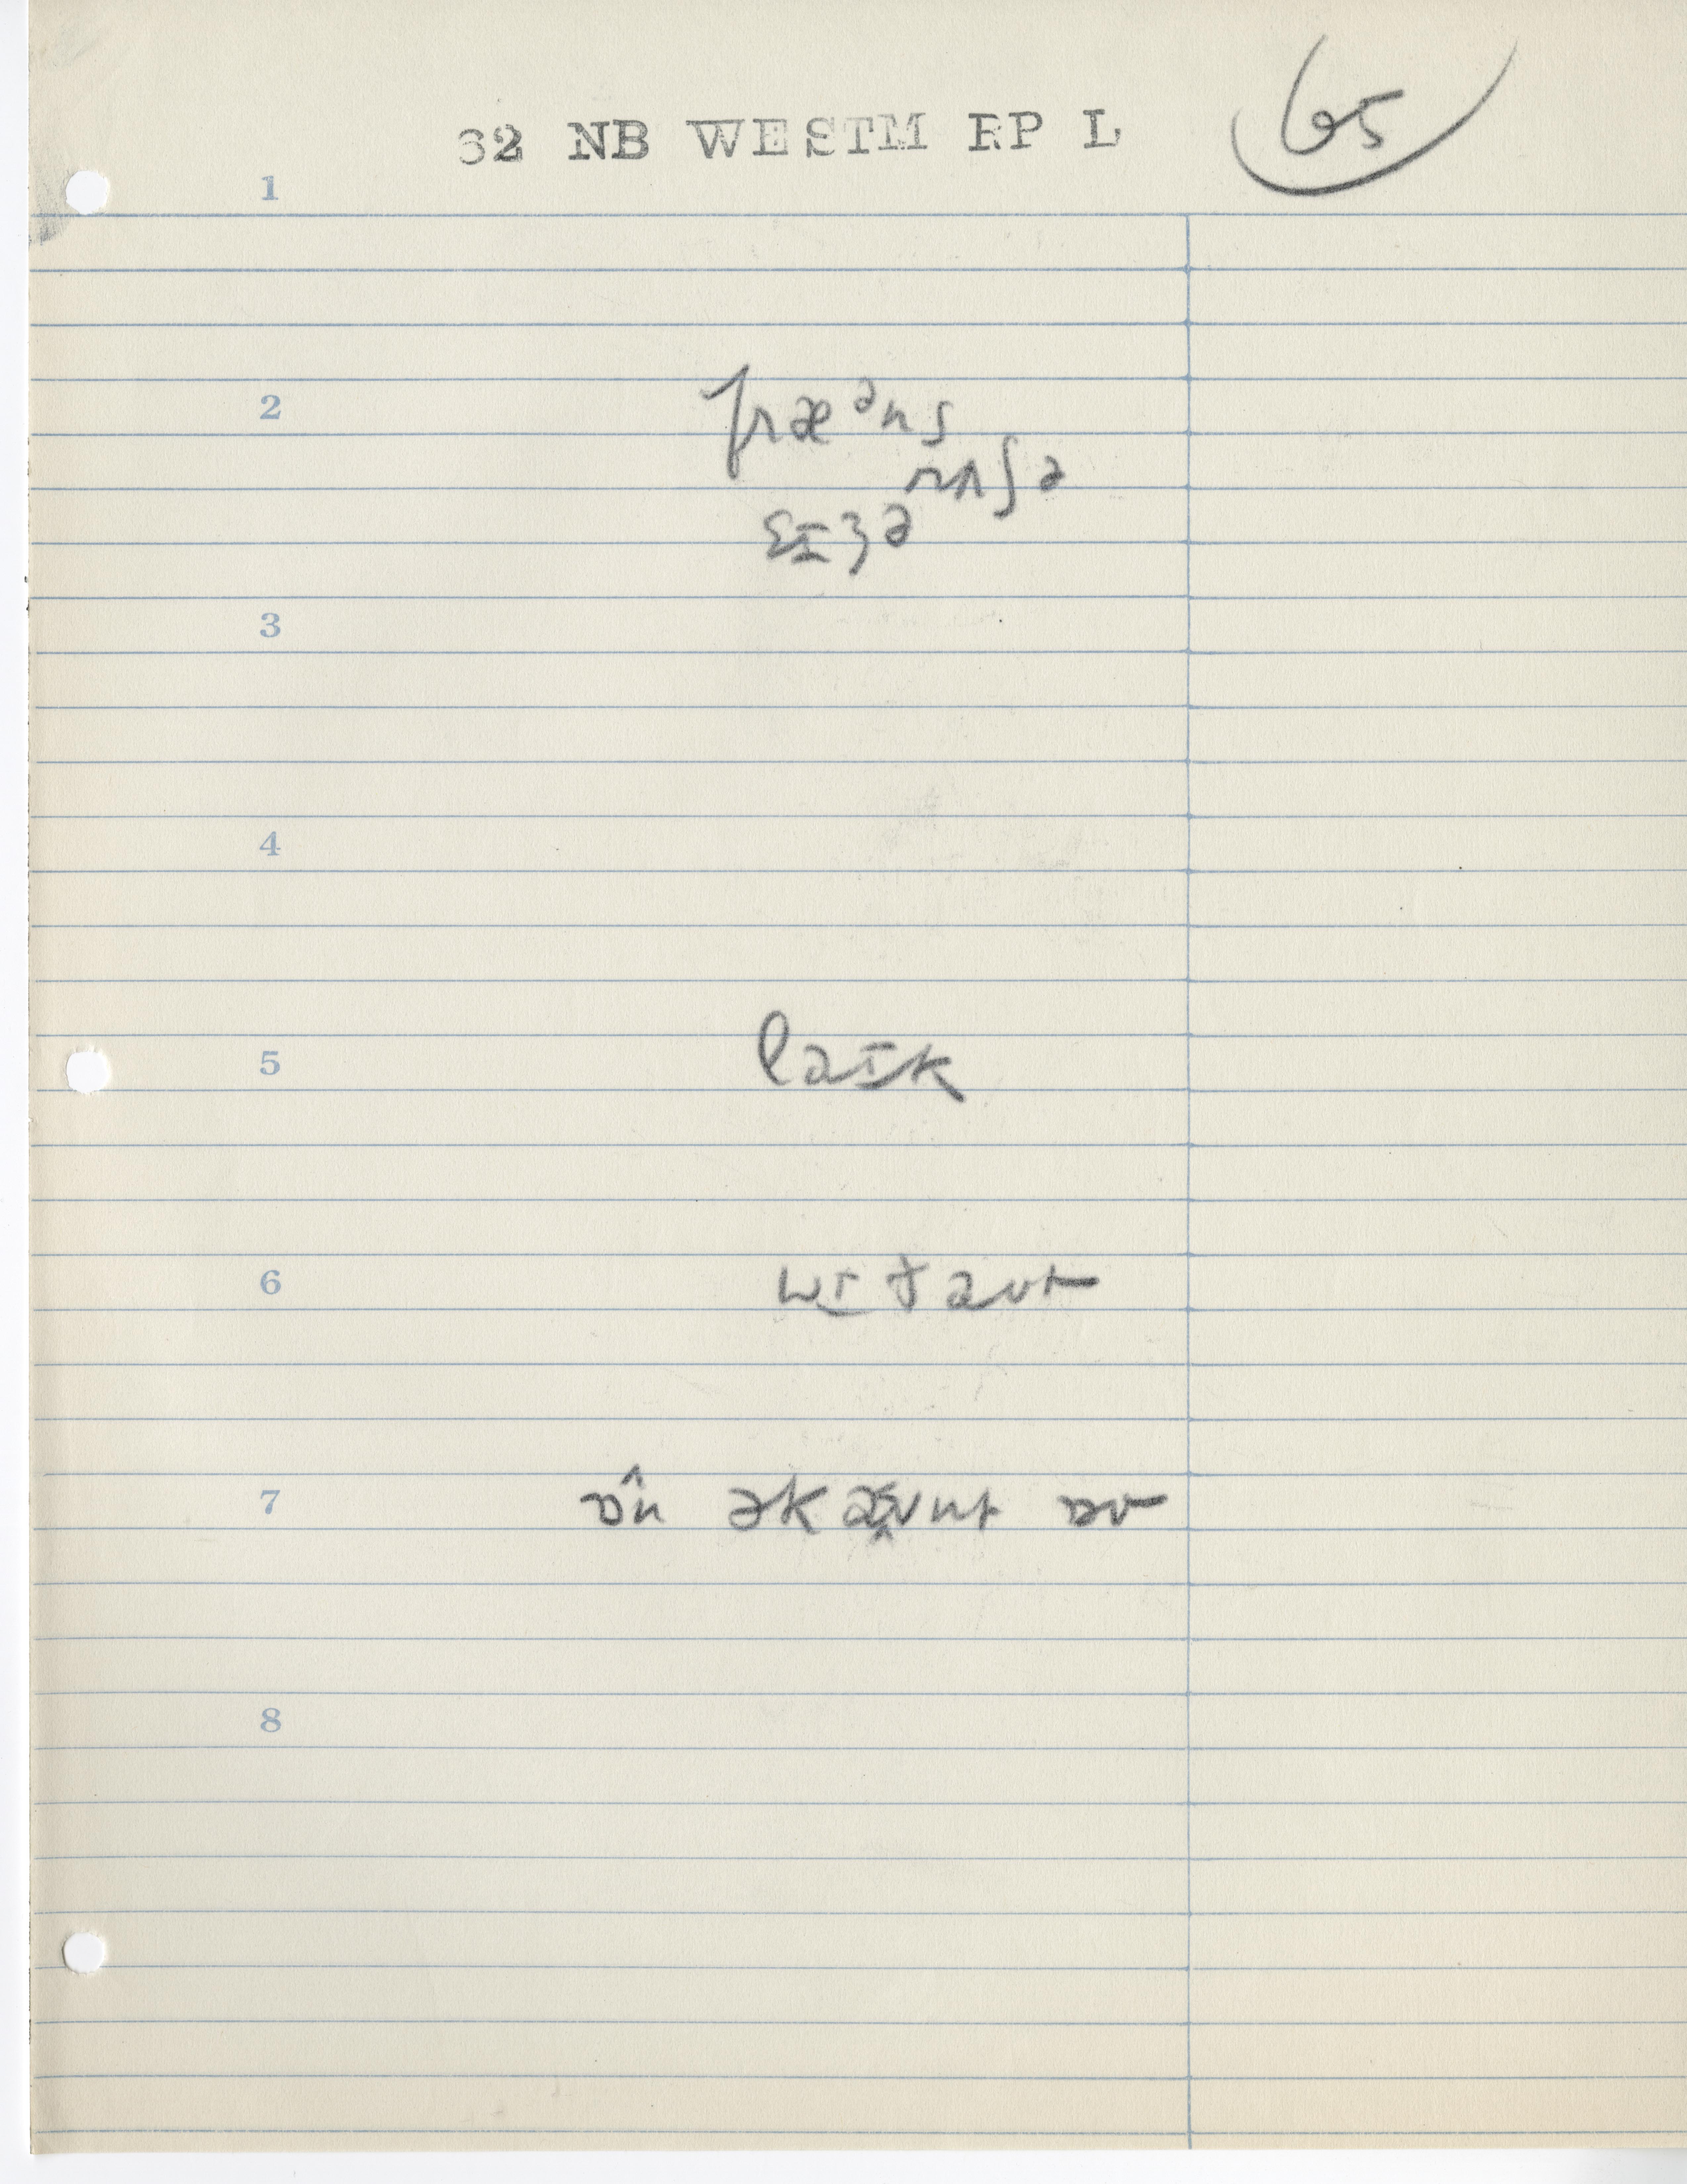 62 NB WESTM RP L
65
1
2
fræᵊns
rʌʃə
ɛɪʒə
3
4
5
laɪk
6
wɪt aʊt
7
ɒ̂n əkæʊnt ɒv
8